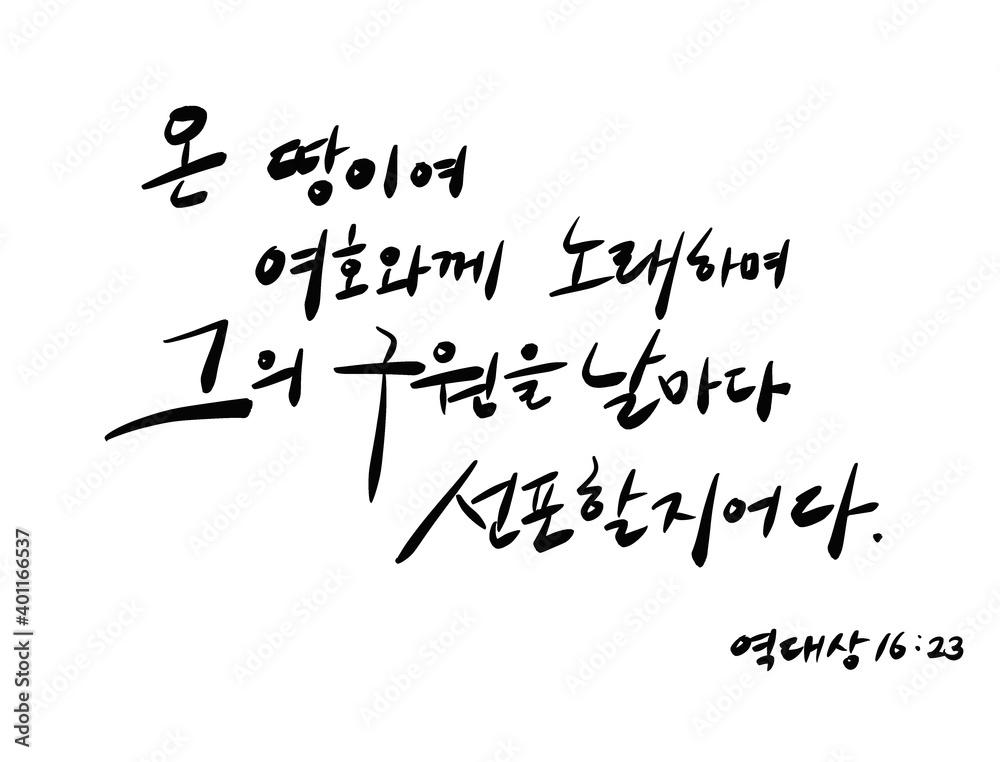 온 땅이여
여호와께 노래하며
그의 구원을 날마다
선포할지어다.
역대상 16:23
Adobe Stock | #401166537